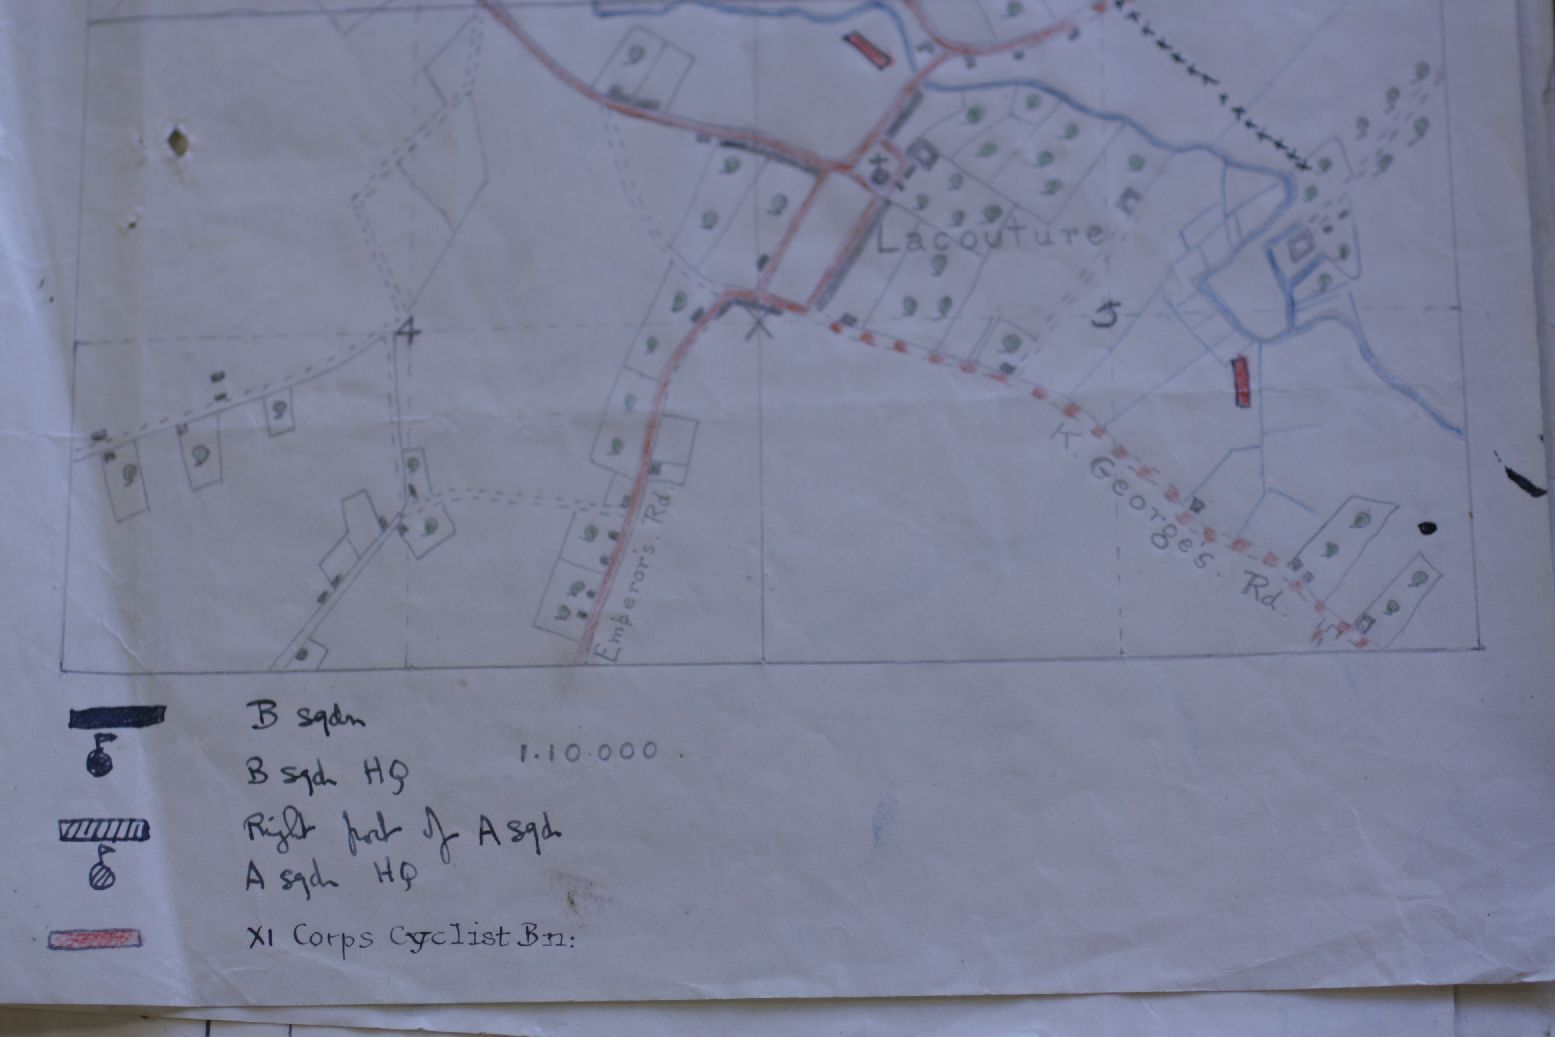 Lacouture
5
4
K. George's. Rd.
Emperor's. Rd.
B sqdn
1.10.000.
B sqdn HQ
Right part of A sqdn
A sqdn HQ
XI Corps Cyclist Bn: